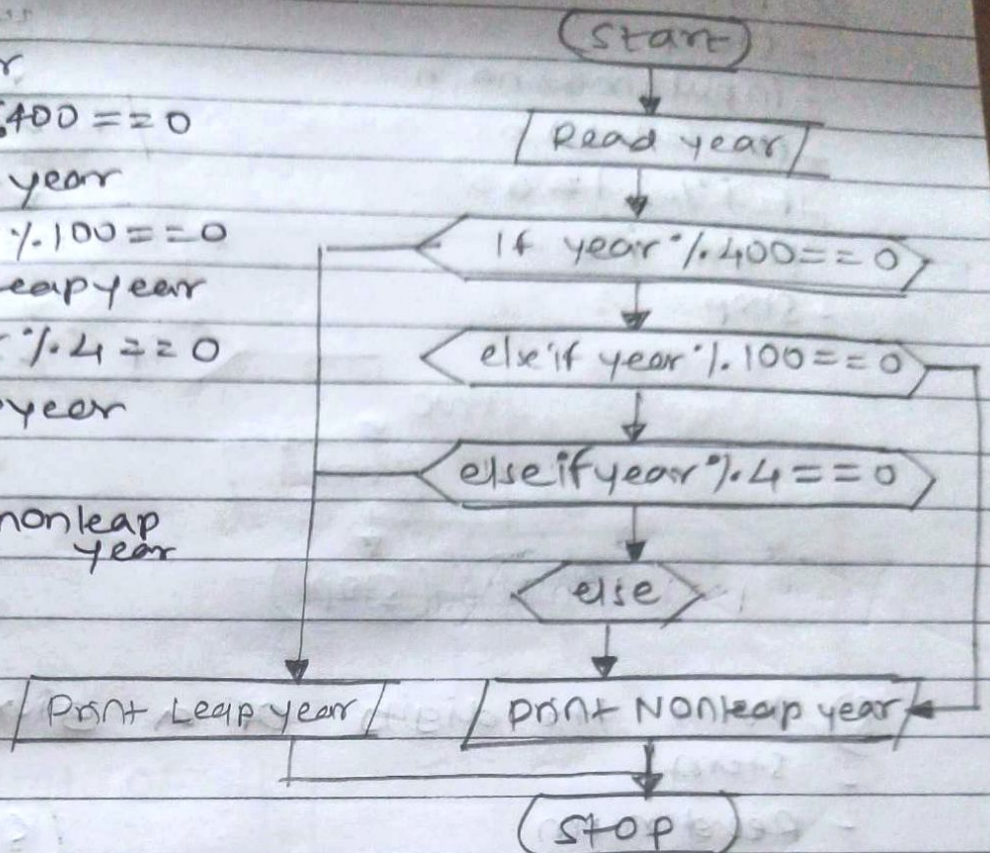 r
400 == 0
year
% 100 == 0
eap year
% 4 == 0
year
nonleap
year
Start
Read year
If year % 400 == 0
else if year % 100 == 0
else if year % 4 == 0
else
Print Leap year
print Nonleap year
Stop